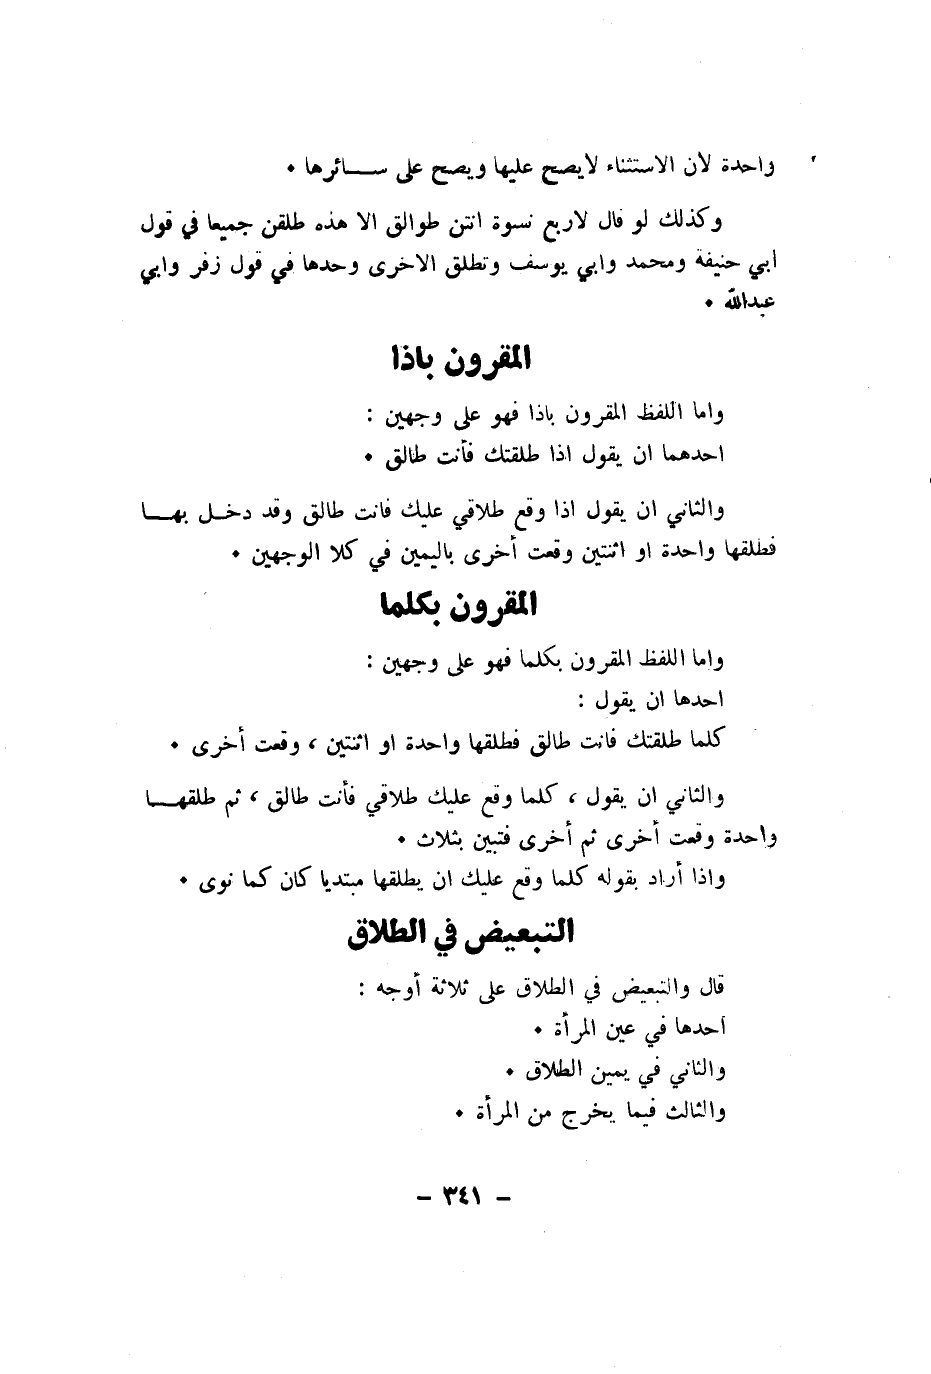 واحدة لان الاستثناء لايصح عليها ويصح على سائرها .
وكذلك لو قال لاربع نسوة انتن طوالق الا هذه طلقن جميعا في قول
ابي حنيفة ومحمد وابي يوسف وتطلق الاخرى وحدها في قول زفر وابي
عبدالله .
المقرون باذا
واما اللفظ المقرون باذا فهو على وجهين :
احدهما ان يقول اذا طلقتك فأنت طالق .
والثاني ان يقول اذا وقع طلاقي عليك فانت طالق وقد دخل بها
فطلقها واحدة او اثنتين وقعت أخرى باليمين في كلا الوجهين .
المقرون بكلما
واما اللفظ المقرون بكلما فهو على وجهين :
احدها ان يقول :
كلما طلقتك فانت طالق فطلقها واحدة او اثنتين ، وقعت أخرى .
والثاني ان يقول ، كلما وقع عليك طلاقي فأنت طالق ، ثم طلقها
واحدة وقعت أخرى ثم أخرى فتبين بثلاث .
واذا أراد بقوله كلما وقع عليك ان يطلقها مبتديا كان كما نوى .
التبعيض في الطلاق
قال والتبعيض في الطلاق على ثلاثة أوجه :
احدها في عين المرأة .
والثاني في يمين الطلاق .
والثالث فيما يخرج من المرأة .
– ٣٤١ –